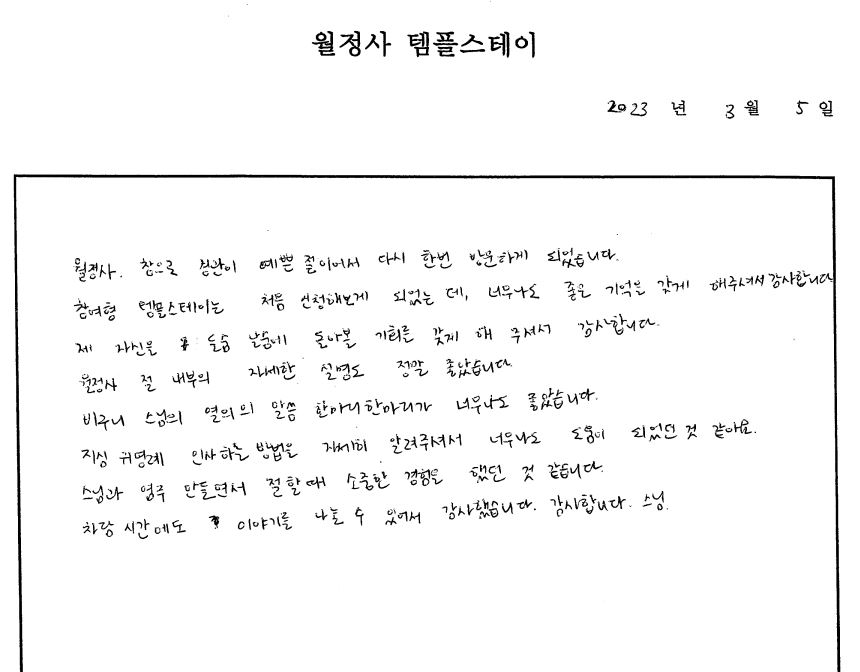 월정사 템플스테이
2023 년 3 월 5 일
월정사. 참으로 경관이 예쁜 절이어서 다시 한번 방문하게 되었습니다.
참여형 템플스테이는 처음 신청해보게 되었는 데, 너무나도 좋은 기억을 갖게 해주셔서 감사합니다
제 자신을 돌아볼 기회를 갖게 해 주셔서 감사합니다.
월정사 절 내부의 자세한 설명도 정말 좋았습니다.
비구니 스님의 열의의 말씀 한마디한마디가 너무나도 좋았습니다.
지심 귀명례 인사하는 방법을 자세히 알려주셔서 너무나도 도움이 되었던 것 같아요.
스님과 염주 만들면서 절할때 소중한 경험을 했던 것 같습니다.
차담 시간에도 이야기를 나눌 수 있어서 감사했습니다. 감사합니다. 스님.